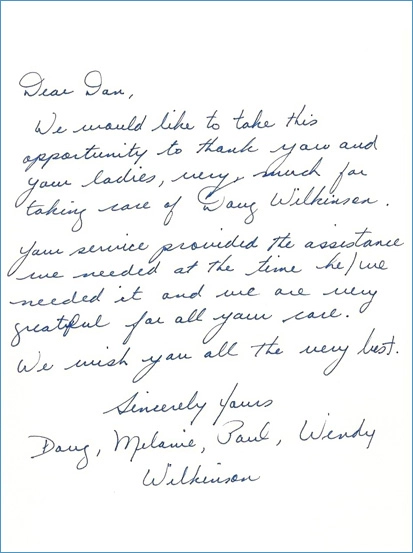 Dear Dan,
We would like to take this
opportunity to thank you and
your ladies, very, much for
taking care of Doug Wilkinson.
Your service provided the assistance
we needed at the time he/we
needed it and we are very
greatful for all your care.
We wish you all the very best.
Sincerely Yours
Doug, Melanie, Paul, Wendy
Wilkinson